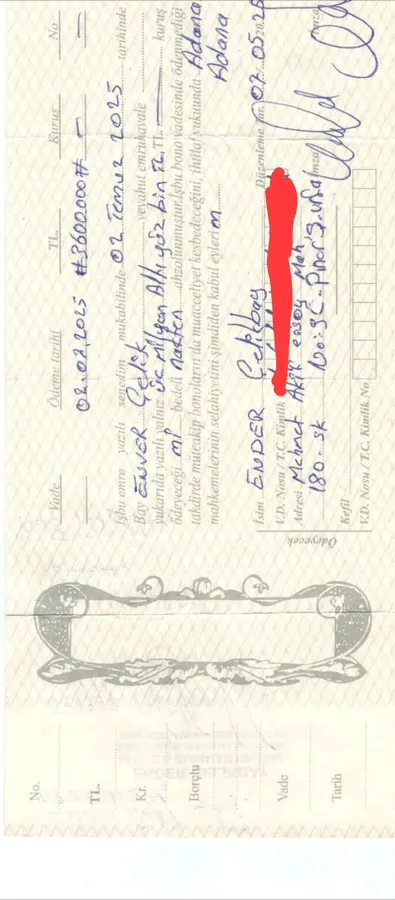 Vade Ödeme tarihi TL. Kuruş No
02.07.2025 #3600.000#
İşbu emre yazılı senedim mukabilinde 02 Temuz 2025 tarihinde
Bay ENVER Çelik veyahut emrühavale
yukarıda yazılı yalnız üç milyon Altı yüz bin TL. kuruş
ödeyeceğim. bedeli nakten ahzolunmuştur. İşbu bono vadesinde ödenmediği
takdirde müteakip bonoların da muacceliyet kesbedeceğini, ihtilaf vukuunda Adana
mahkemelerinin selahiyetini şimdiden kabul eylerim Adana
Ödeyecek
İsim ENDER Düzenleme Tar. 07.05.2025
V.D. Nosu / T.C. Kimlik
Adresi Mehmet Akif ersoy Mah İmza
180. sk No:
Kefil
V.D. Nosu / T.C. Kimlik No
No.
TL.
Kr.
Borçlu
Vade
Tarih